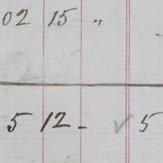 02 15 "
5 12 - ✓ 5